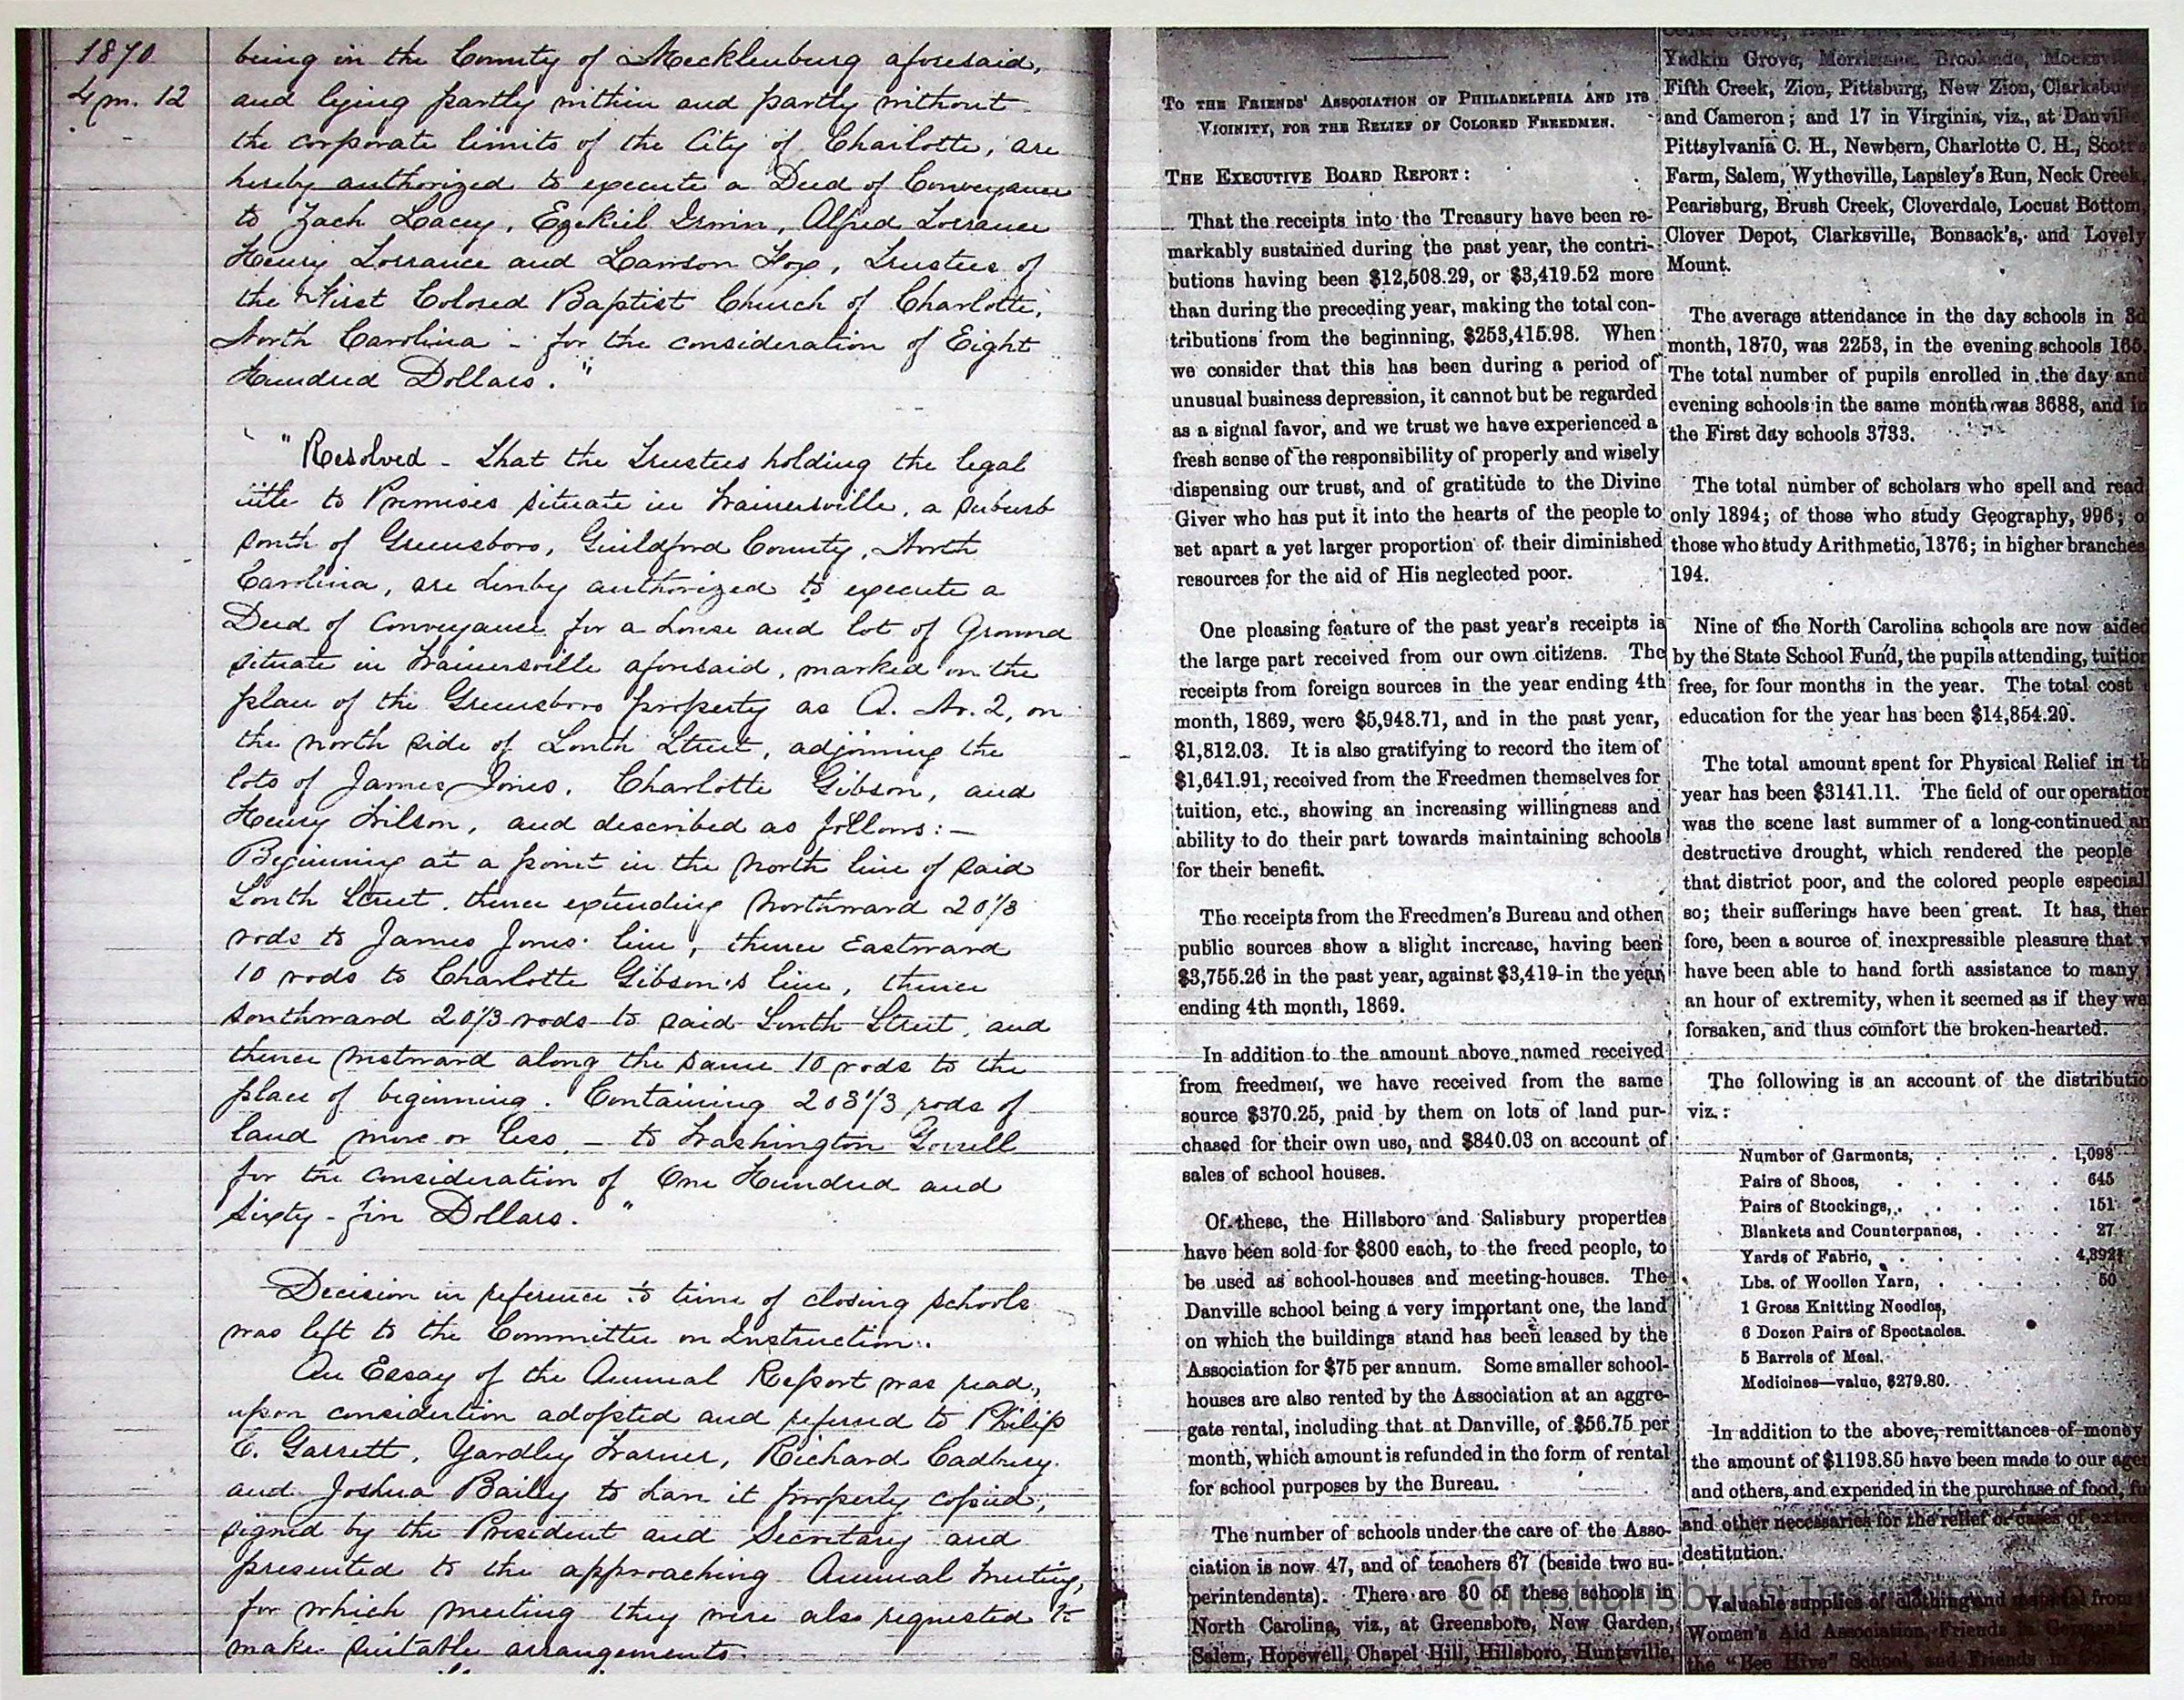 1870
4 m. 12
being in the County of Mecklenburg aforesaid,
and lying partly within and partly without
the corporate limits of the City of Charlotte, are
hereby authorized to execute a Deed of Conveyance
to Zach Lacey, Ezekiel Irwin, Alfred Lorrance
Henry Lorrance and Lawson Fox, Trustees of
the First Colored Baptist Church of Charlotte,
North Carolina - for the consideration of Eight
Hundred Dollars."
"Resolved - That the Trustees holding the legal
title to Premises situate in Warnersville, a suburb
south of Greensboro, Guildford County, North
Carolina, are hereby authorized to execute a
Deed of Conveyance for a house and lot of Ground
situate in Warnersville aforesaid, marked on the
plan of the Greensboro property as A. No. 2, on
the north side of South Street, adjoining the
lots of James Jones, Charlotte Gibson, and
Henry Wilson, and described as follows: -
Beginning at a point in the north line of said
South Street, thence extending Northward 20 1/3
rods to James Jones' line, thence Eastward
10 rods to Charlotte Gibson's line, thence
southward 20 1/3 rods to said South Street, and
thence westward along the same 10 rods to the
place of beginning. Containing 203 1/3 rods of
land more or less, - to Washington Gorrell
for the consideration of One Hundred and
Sixty-five Dollars."
Decision in reference to time of closing schools
was left to the Committee on Instruction.
An Essay of the Annual Report was read,
upon consideration adopted and referred to Philip
C. Garrett, Yardley Warner, Richard Cadbury
and Joshua Baily to have it properly copied,
signed by the President and Secretary and
presented to the approaching Annual Meeting,
for which meeting they were also requested to
make suitable arrangements.
To the Friends' Association of Philadelphia and its
Vicinity, for the Relief of Colored Freedmen.
The Executive Board Report:
That the receipts into the Treasury have been re-
markably sustained during the past year, the contri-
butions having been $12,508.29, or $3,419.52 more
than during the preceding year, making the total con-
tributions from the beginning, $253,415.98. When
we consider that this has been during a period of
unusual business depression, it cannot but be regarded
as a signal favor, and we trust we have experienced a
fresh sense of the responsibility of properly and wisely
dispensing our trust, and of gratitude to the Divine
Giver who has put it into the hearts of the people to
set apart a yet larger proportion of their diminished
resources for the aid of His neglected poor.
One pleasing feature of the past year's receipts is
the large part received from our own citizens. The
receipts from foreign sources in the year ending 4th
month, 1869, were $5,948.71, and in the past year,
$1,812.03. It is also gratifying to record the item of
$1,641.91, received from the Freedmen themselves for
tuition, etc., showing an increasing willingness and
ability to do their part towards maintaining schools
for their benefit.
The receipts from the Freedmen's Bureau and other
public sources show a slight increase, having been
$3,755.26 in the past year, against $3,419 in the year
ending 4th month, 1869.
In addition to the amount above named received
from freedmen, we have received from the same
source $370.25, paid by them on lots of land pur-
chased for their own use, and $840.03 on account of
sales of school houses.
Of these, the Hillsboro and Salisbury properties
have been sold for $800 each, to the freed people, to
be used as school-houses and meeting-houses. The
Danville school being a very important one, the land
on which the buildings stand has been leased by the
Association for $75 per annum. Some smaller school-
houses are also rented by the Association at an aggre-
gate rental, including that at Danville, of $56.75 per
month, which amount is refunded in the form of rental
for school purposes by the Bureau.
The number of schools under the care of the Asso-
ciation is now 47, and of teachers 67 (beside two su-
perintendents). There are 30 of these schools in
North Carolina, viz., at Greensboro, New Garden,
Salem, Hopewell, Chapel Hill, Hillsboro, Huntsville,
Yadkin Grove, Brookside,
Fifth Creek, Zion, Pittsburg, New Zion, Clarksbur
and Cameron; and 17 in Virginia, viz., at Danville,
Pittsylvania C. H., Newbern, Charlotte C. H., Scott's
Farm, Salem, Wytheville, Lapsley's Run, Neck Creek,
Pearisburg, Brush Creek, Cloverdale, Locust Bottom,
Clover Depot, Clarksville, Bonsack's, and Lovely
Mount.
The average attendance in the day schools in 3d
month, 1870, was 2253, in the evening schools 165.
The total number of pupils enrolled in the day and
evening schools in the same month was 3688, and in
the First day schools 3733.
The total number of scholars who spell and read
only 1894; of those who study Geography, 996; o
those who study Arithmetic, 1376; in higher branches
194.
Nine of the North Carolina schools are now aided
by the State School Fund, the pupils attending, tuition
free, for four months in the year. The total cost
education for the year has been $14,854.29.
The total amount spent for Physical Relief in th
year has been $3141.11. The field of our operation
was the scene last summer of a long-continued an
destructive drought, which rendered the people
that district poor, and the colored people especiall
so; their sufferings have been great. It has, ther
fore, been a source of inexpressible pleasure that w
have been able to hand forth assistance to many
an hour of extremity, when it seemed as if they we
forsaken, and thus comfort the broken-hearted.
The following is an account of the distributio
viz.:
Number of Garments, 1,098
Pairs of Shoes, 645
Pairs of Stockings, 151
Blankets and Counterpanes, 27
Yards of Fabric,
Lbs. of Woollen Yarn, 50
1 Gross Knitting Needles,
6 Dozen Pairs of Spectacles.
5 Barrels of Meal.
Medicines—value, $279.80.
In addition to the above, remittances of money
the amount of $1193.85 have been made to our agen
and others, and expended in the purchase of food, fu
and other necessaries for the relief of cases of extre
destitution.
Valuable supplies of clothing and material from
Women's Aid Association, Friends in
the "Bee Hive" School, and Friends
Christiansburg Institute, Inc.